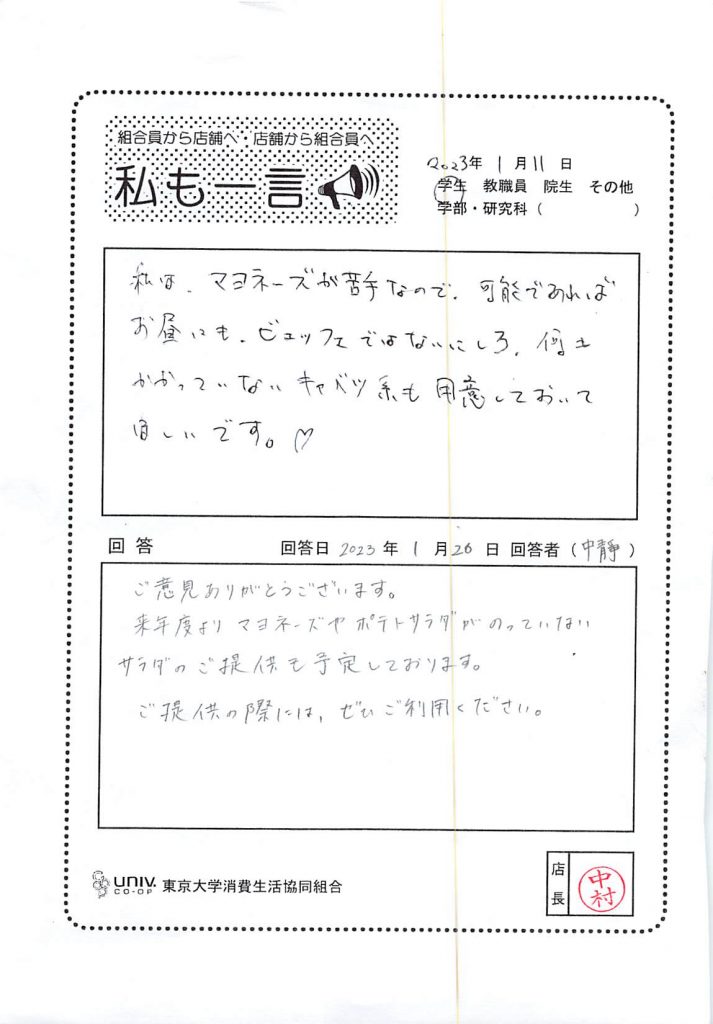 組合員から店舗へ・店舗から組合員へ
私も一言
2023年 1月11日
学生 教職員 院生 その他
学部・研究科( )
私は、マヨネーズが苦手なので、可能であれば
お昼にも、ビュッフェではないにしろ、何も
かかっていないキャベツ系も用意しておいて
ほしいです。♡
回答 回答日 2023年 1月26日 回答者(中静)
ご意見ありがとうございます。
来年度より マヨネーズや ポテトサラダが のっていない
サラダの ご提供も 予定しております。
ご提供の際には、ぜひ ご利用ください。
UNIV. CO-OP 東京大学消費生活協同組合
店長 中村